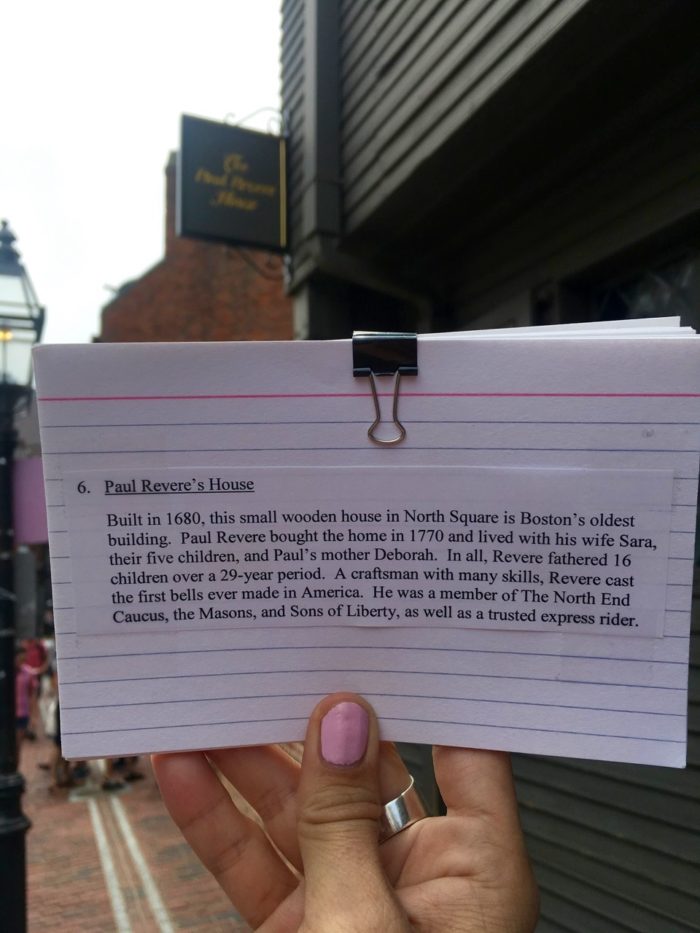 The
Paul Revere
House
6. Paul Revere's House
Built in 1680, this small wooden house in North Square is Boston's oldest
building. Paul Revere bought the home in 1770 and lived with his wife Sara,
their five children, and Paul's mother Deborah. In all, Revere fathered 16
children over a 29-year period. A craftsman with many skills, Revere cast
the first bells ever made in America. He was a member of The North End
Caucus, the Masons, and Sons of Liberty, as well as a trusted express rider.